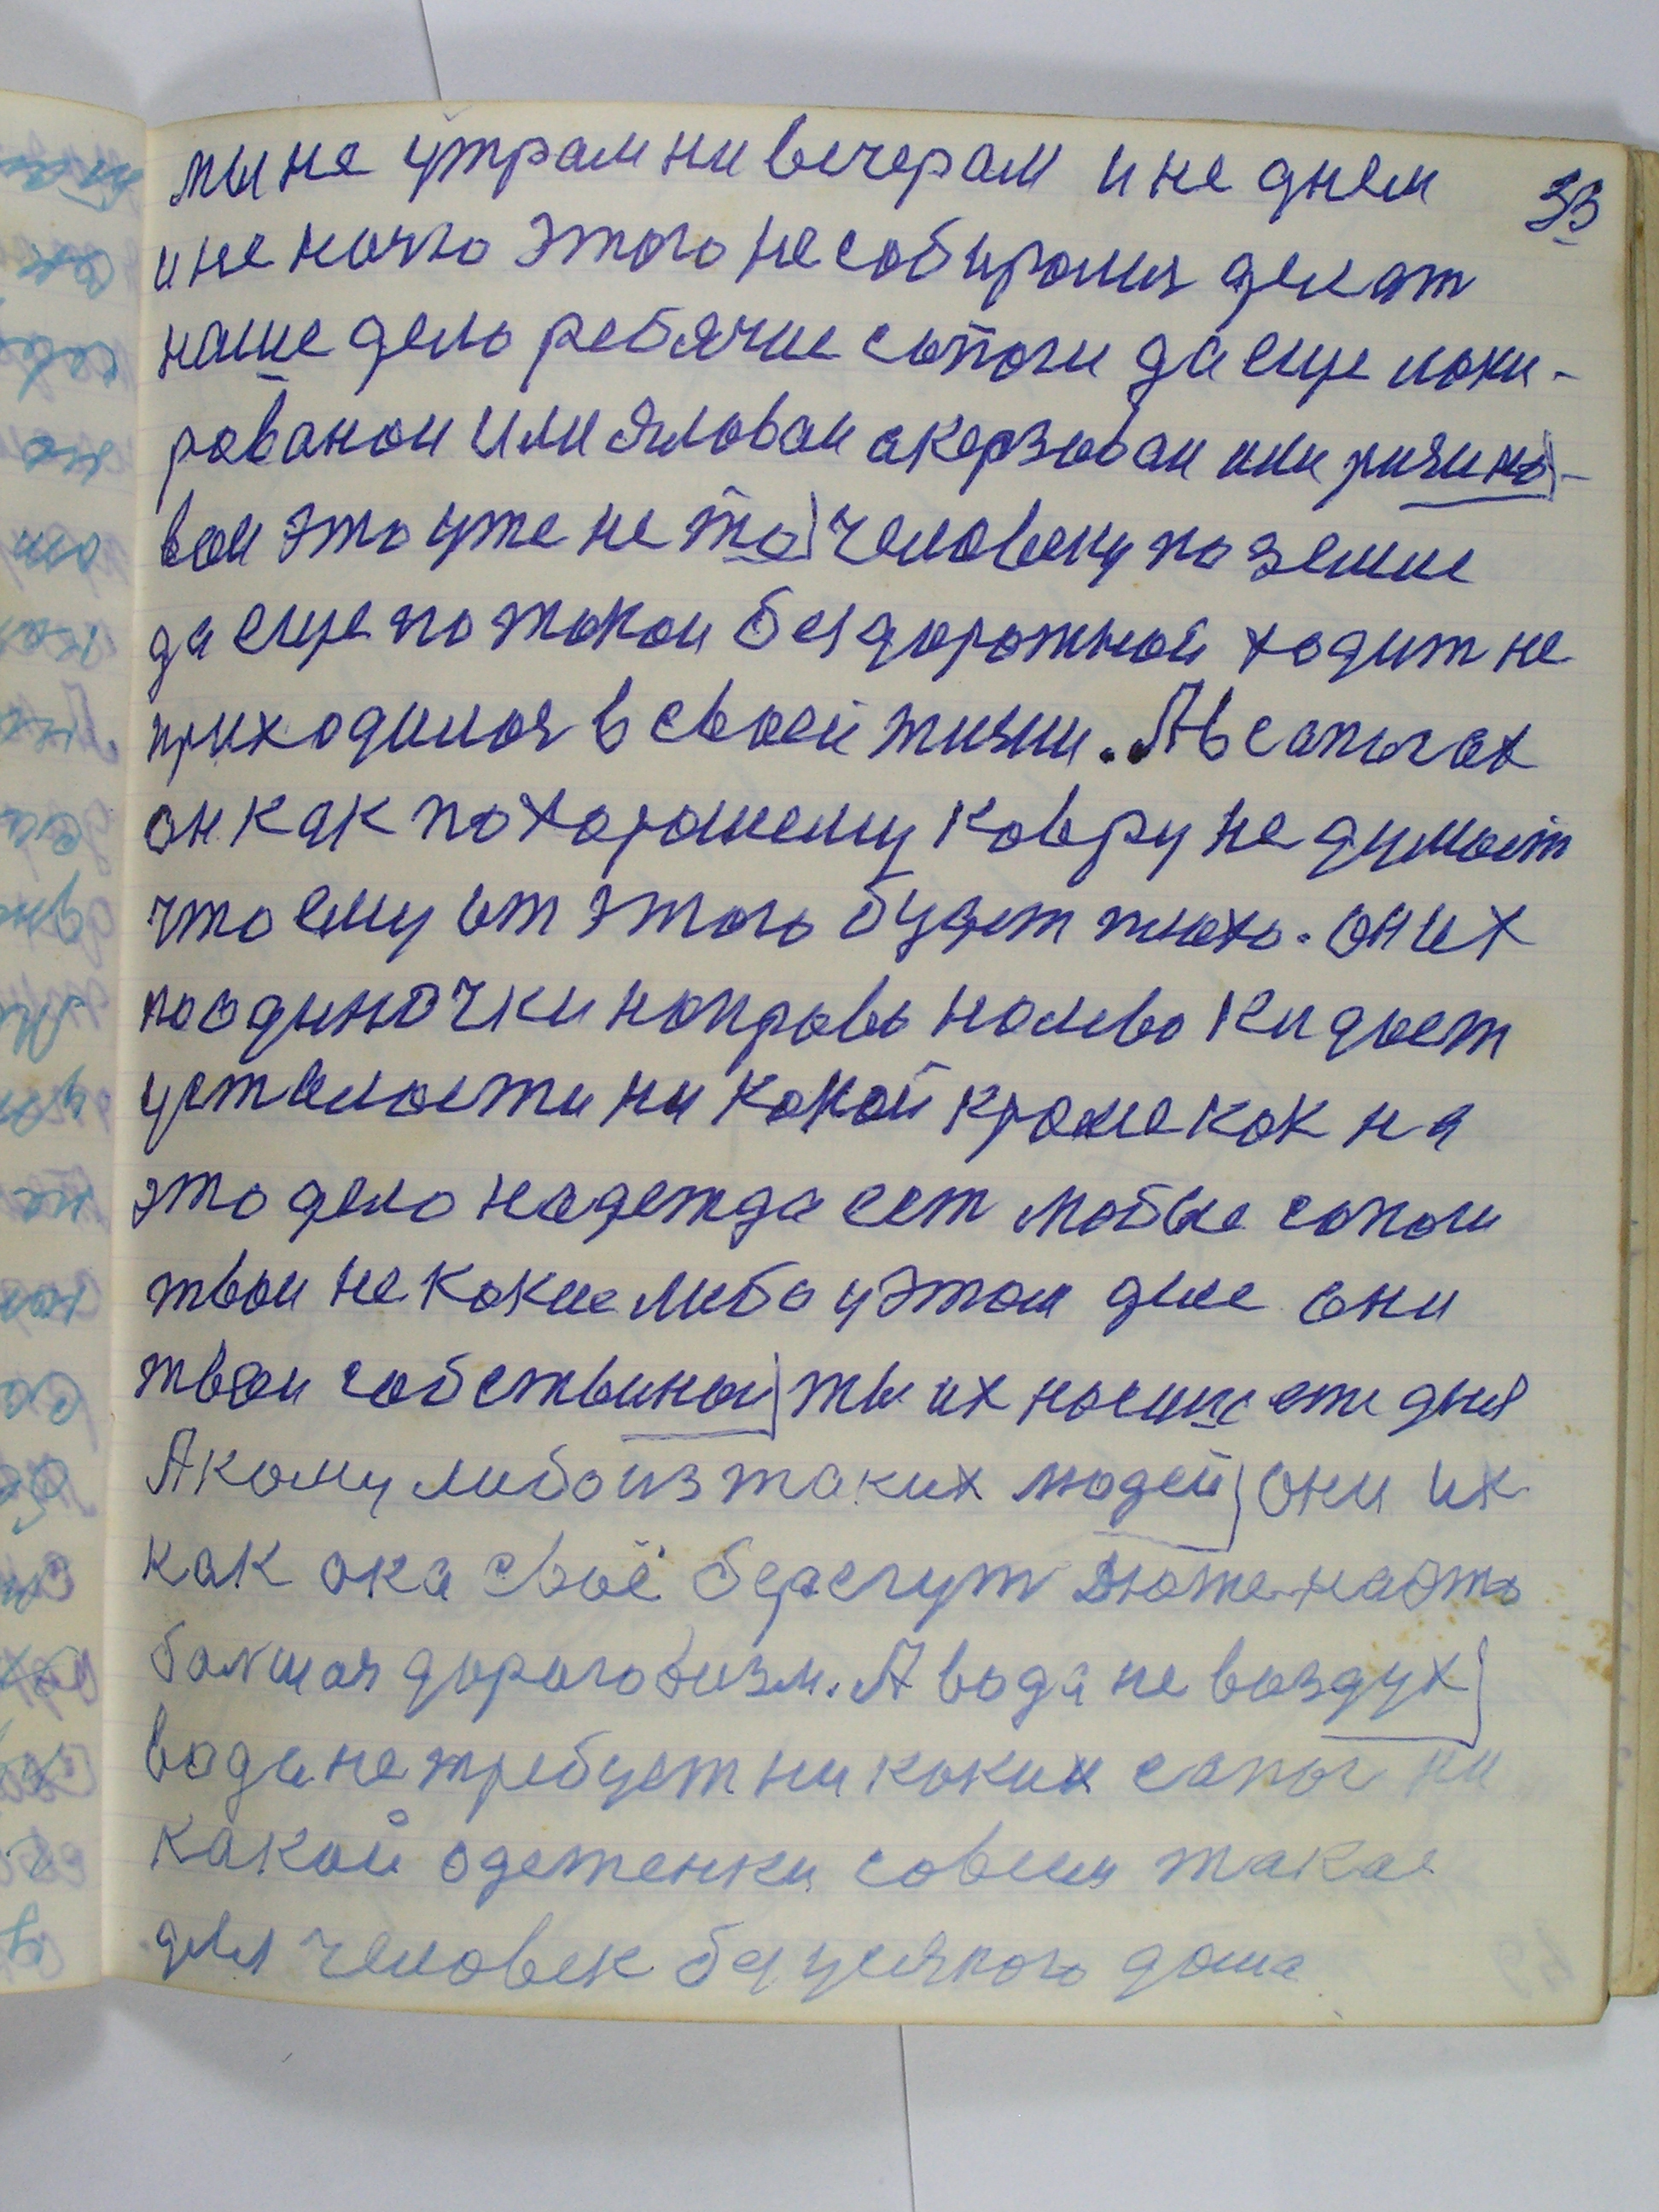 33
мы не утрам ни вечерам и не днем
и не ночю этого не собиромся делат
наше дело ребячие сопоги да еще локи-
рованои или Яловаи а керзоваи или ризино-
вои это уже не то человеку по земле
да еще по токои без дорожной ходит не
приходилося в своей жизни. А в сапогах
он как по хорошему ковру не думоет
что ему от этого будет плохо. он их
по одиночки нопрово нолево кидоет
усталости ни какой кроме кок на
это дело надежда ест любые сопоги
твои не какие либо у этом деле они
твои собствиной ты их носиш ети дня
А кому либо из таких людей они их
как ока своё берегут
болшоя дороговизм. А вода не воздух
вода не требует ни коких сапог ни
какой одеженки совсем такое
дела человек без усякого дома